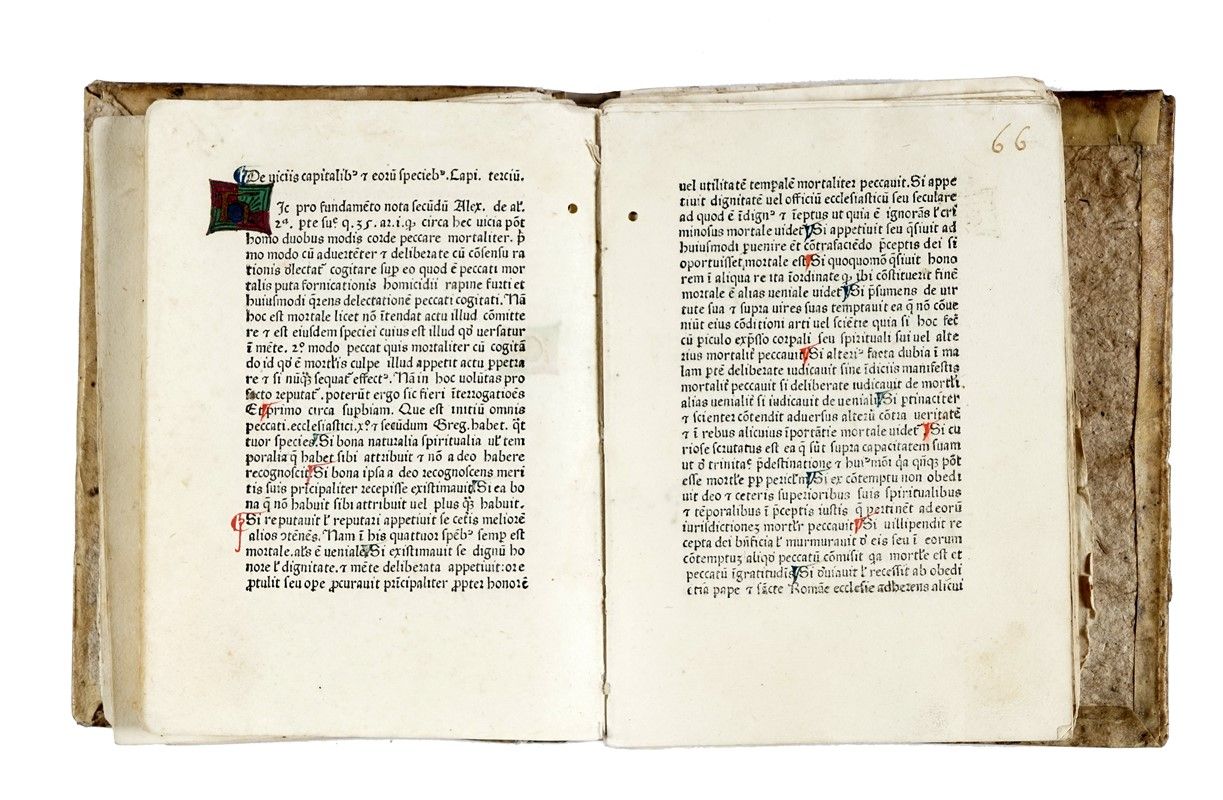 De uiciis capitalibꝰ ⁊ eorū speciebꝰ. Capi. terciū.
Ic pro fundamēto nota secūdū Alex. de al.
2ª. pte suᵉ q.35. ar.i.q̧ circa hec uicia pōt
homo duobus modis corde peccare mortaliter. p̄
mo modo cū aduertēter ⁊ deliberate cū cōsensu ra
tionis delectat᷒ cogitare sup eo quod ē peccati mor
talis puta fornicationis homicidii rapine furti et
huiusmodi q̄rens delectationē peccati cogitati. Nā
hoc est mortale licet nō ītendat actu illud cōmitte
re ⁊ est eiusdem speciei cuius est illud qđ uersatur
ī mēte. 2º modo peccat quis mortaliter cū cogitā
do id qđ ē mortl̄is culpe illud appetit actu ꝑpetra
re ⁊ si nūq̄ꝫ sequat᷒ effectꝰ. Nā in hoc uolūtas pro
facto reputat᷒. poterūt ergo sic fieri īterrogatioēs
Et primo circa supbiam. Que est initiū omnis
peccati. ecclesiastici.xº ⁊ secūdum Greg. habet. q̄t
tuor species. Si bona naturalia spiritualia ul̄ tem
poralia q̄ habet sibi attribuit ⁊ nō a deo habere
recognoscit Si bona ipsa a deo recognoscens meri
tis suis prīcipaliter recepisse existimauit Si ea bo
na q̄ nō habuit sibi attribuit uel plus q̄ꝫ habuit.
Si reputauit l̄ reputari appetiuit se cetis meliorē
alios ꝯtēnēs. Nam ī his quattuor spēbꝰ semp est
mortale. al̄s ē ueniale Si existimauit se dignū ho
nore l̄ dignitate. ⁊ mēte deliberata appetiuit: ore
ꝓtulit seu ope ꝓcurauit prīcipaliter ꝓpter honorē
66
uel utilitatē tempalē mortaliter peccauit. Si appe
tiuit dignitatē uel officiū ecclesiasticū seu seculare
ad quod ē īdignꝰ ⁊ īeptus ut quia ē ignorās l̄ cri
minosus mortale uidet᷒ Si appetiuit seu q̄siuit ad
huiusmodi puenire ēt cōtrafaciēdo p̄ceptis dei si
oportuisset, mortale est Si quoquomō q̄siuit hono
rem ī aliqua re ita īordinate q̧ ibi cōstituerit finē
mortale ē alias ueniale uidet᷒ Si p̄sumens de uir
tute sua ⁊ supra uires suas temptauit ea q̄ nō cōue
niūt eius cōditioni arti uel sciētie quia si hoc fecit
cū piculo exp̄sso corpali seu spirituali sui uel alte
rius mortalit̄ peccauit Si alteriꝰ facta dubia ī ma
lam ptē deliberate iudicauit sine īdiciis manifestis
mortalit̄ peccauit si deliberate iudicauit de mortl̄i.
alias uenialit̄ si iudicauit de ueniali Si ptinaciter
⁊ scienter cōtendit aduersus alterū cōtra ueritatē
⁊ ī rebus alicuius īportātie mortale uidet᷒ Si cu
riose scrutatus est ea q̄ sūt supra capacitatem suam
ut đ trinitaᵉ p̄destinatione ⁊ huiꝰmōi q̄a qn̄qꝫ pōt
esse mortl̄e pp pericl̄m Si ex cōtemptu non obedi
uit deo ⁊ ceteris superioribus suis spiritualibus
⁊ tēporalibus ī p̄ceptis iustis q̄ pertinēt ad eorū
iurisdictionez mortl̄r peccauit Si uillipendit re
cepta dei bn̄ficia l̄ murmurauit đ eis seu ī eorum
cōtemptuꝫ aliqđ peccatū cōmisit q̄a mortl̄e est et
peccatū īgratitudīs Si đuiauit l̄ recessit ab obedi
ētia pape ⁊ sācte Romāe ecclesie adherens alicui